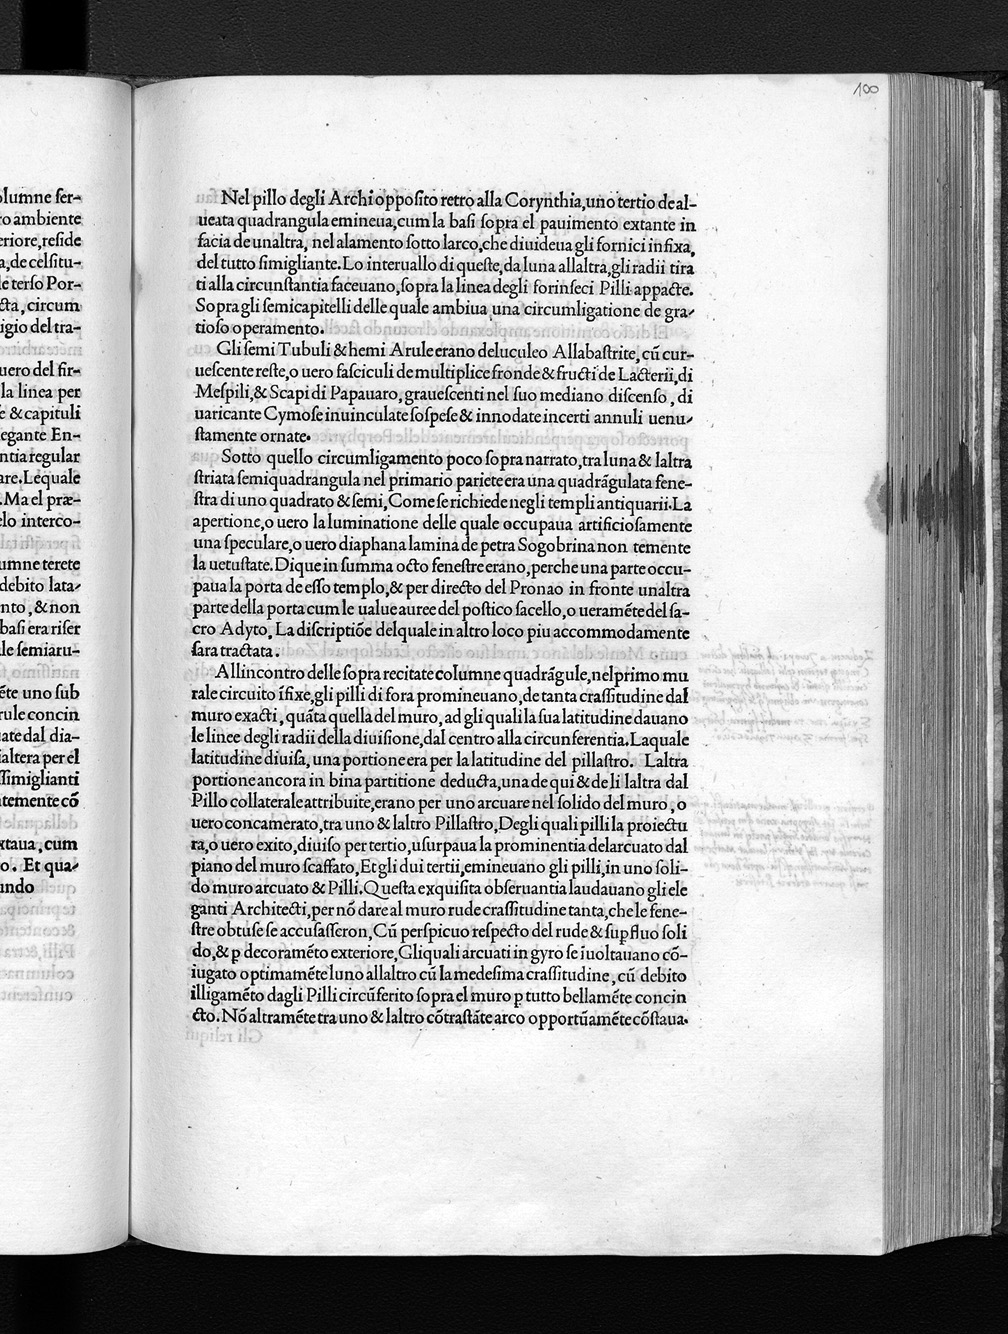 100
olumne ſer-
ro ambiente
eriore, reſide
a, de celſitu-
le terſo Por-
cta, circum
igio del tra-
uero del fir-
la linea per
e & capituli
egante En-
ntia regular
are. Lequale
. Ma el præ-
elo interco-
umne terete
debito lata-
nto, & non
baſi era riſer
le ſemiaru-
ẽte uno ſub
rule concin
ate dal dia-
altera per el
ſſimiglianti
temente cõ
xtaua, cum
o. Et qua-
undo
Nel pillo degli Archi oppoſito retro alla Corynthia, uno tertio de al-
ueata quadrangula emineua, cum la baſi ſopra el pauimento extante in
facia de unaltra, nel alamento ſotto larco, che diuideua gli fornici infixa,
del tutto ſimigliante. Lo interuallo di queſte, da luna allaltra, gli radii tira
ti alla circunſtantia faceuano, ſopra la linea degli forinſeci Pilli appacte.
Sopra gli ſemicapitelli delle quale ambiua una circumligatione de gra-
tioſo operamento.
Gli ſemi Tubuli & hemi Arule erano deluculeo Allabaſtrite, cũ cur-
ueſcente reſte, o uero faſciculi de multiplice fronde & fructi de Lacterii, di
Meſpili, & Scapi di Papauaro, graueſcenti nel ſuo mediano diſcenſo, di
uaricante Cymoſe inuinculate ſoſpeſe & innodate incerti annuli uenu-
ſtamente ornate.
Sotto quello circumligamento poco ſopra narrato, tra luna & laltra
ſtriata ſemiquadrangula nel primario pariete era una quadrãgulata fene-
ſtra di uno quadrato & ſemi, Come ſe richiede negli templi antiquarii. La
apertione, o uero la luminatione delle quale occupaua artificioſamente
una ſpeculare, o uero diaphana lamina de petra Sogobrina non temente
la uetuſtate. Dique in ſumma octo feneſtre erano, perche una parte occu-
paua la porta de eſſo templo, & per directo del Pronao in fronte unaltra
parte della porta cum le ualue auree del poſtico ſacello, o ueramẽte del ſa-
cro Adyto, La diſcriptiõe delquale in altro loco piu accommodamente
ſara tractata.
Allincontro delle ſopra recitate columne quadrãgule, nel primo mu
rale circuito ĩfixe, gli pilli di fora promineuano, de tanta craſſitudine dal
muro exacti, quãta quella del muro, ad gli quali la ſua latitudine dauano
le linee degli radii della diuiſione, dal centro alla circunferentia. Laquale
latitudine diuiſa, una portione era per la latitudine del pillaſtro. Laltra
portione ancora in bina partitione deducta, una de qui & de li laltra dal
Pillo collaterale attribuite, erano per uno arcuare nel ſolido del muro, o
uero concamerato, tra uno & laltro Pillaſtro, Degli quali pilli la proiectu
ra, o uero exito, diuiſo per tertio, uſurpaua la prominentia delarcuato dal
piano del muro ſcaffato, Et gli dui tertii, emineuano gli pilli, in uno ſoli-
do muro arcuato & Pilli. Queſta exquiſita obſeruantia laudauano gli ele
ganti Architecti, per nõ dare al muro rude craſſitudine tanta, che le fene-
ſtre obtuſe ſe accuſaſſeron, Cũ perſpicuo reſpecto del rude & ſupfluo ſoli
do, & p decoramẽto exteriore, Gli quali arcuati in gyro ſe ĩuoltauano cõ-
iugato optimamẽte luno allaltro cũ la medeſima craſſitudine, cũ debito
illigamẽto dagli Pilli circũferito ſopra el muro p tutto bellamẽte concin
cto. Nõ altramẽte tra uno & laltro cõtraſtãte arco opportũamẽte cõſtaua.